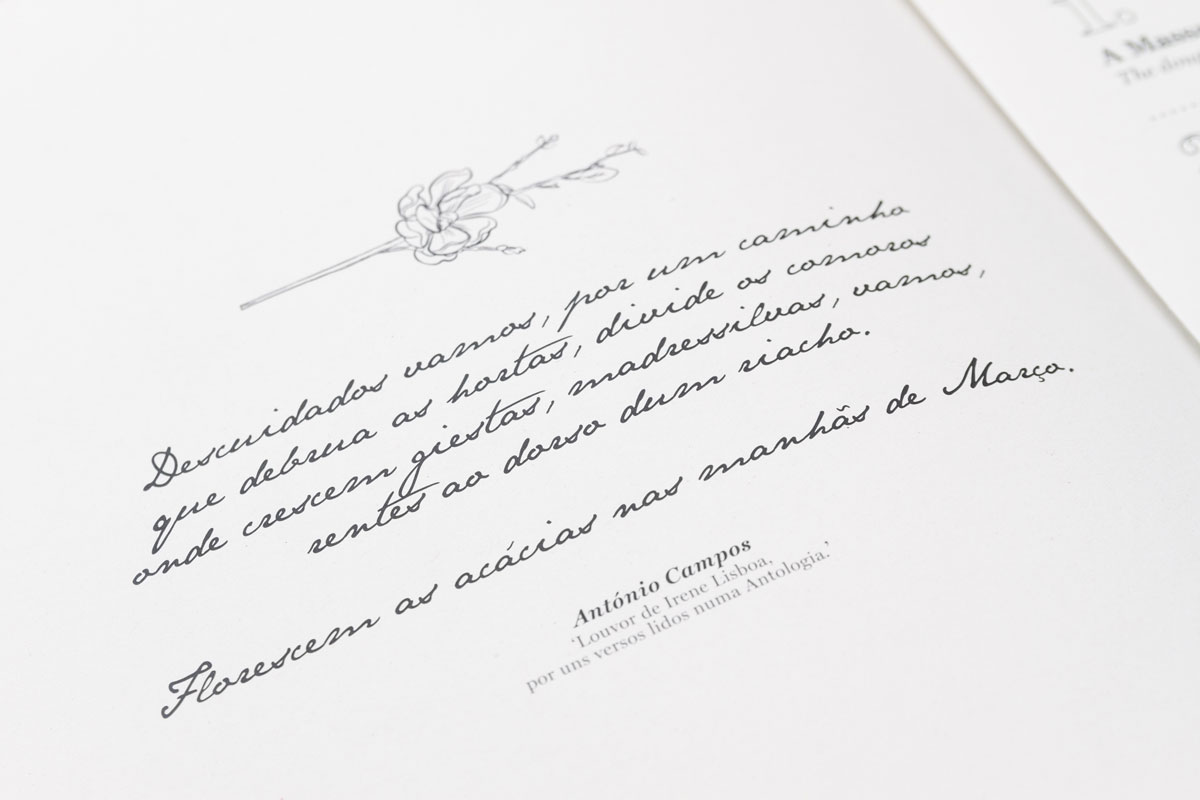 Descuidados vamos, por um caminho
que debrua as hortas, divide os comoros
onde crescem giestas, madressilvas, vamos,
rentes ao dorso dum riacho.
Florescem as acácias nas manhãs de Março.
António Campos
'Louvor de Irene Lisboa,
por uns versos lidos numa Antologia.'
1.
A
The